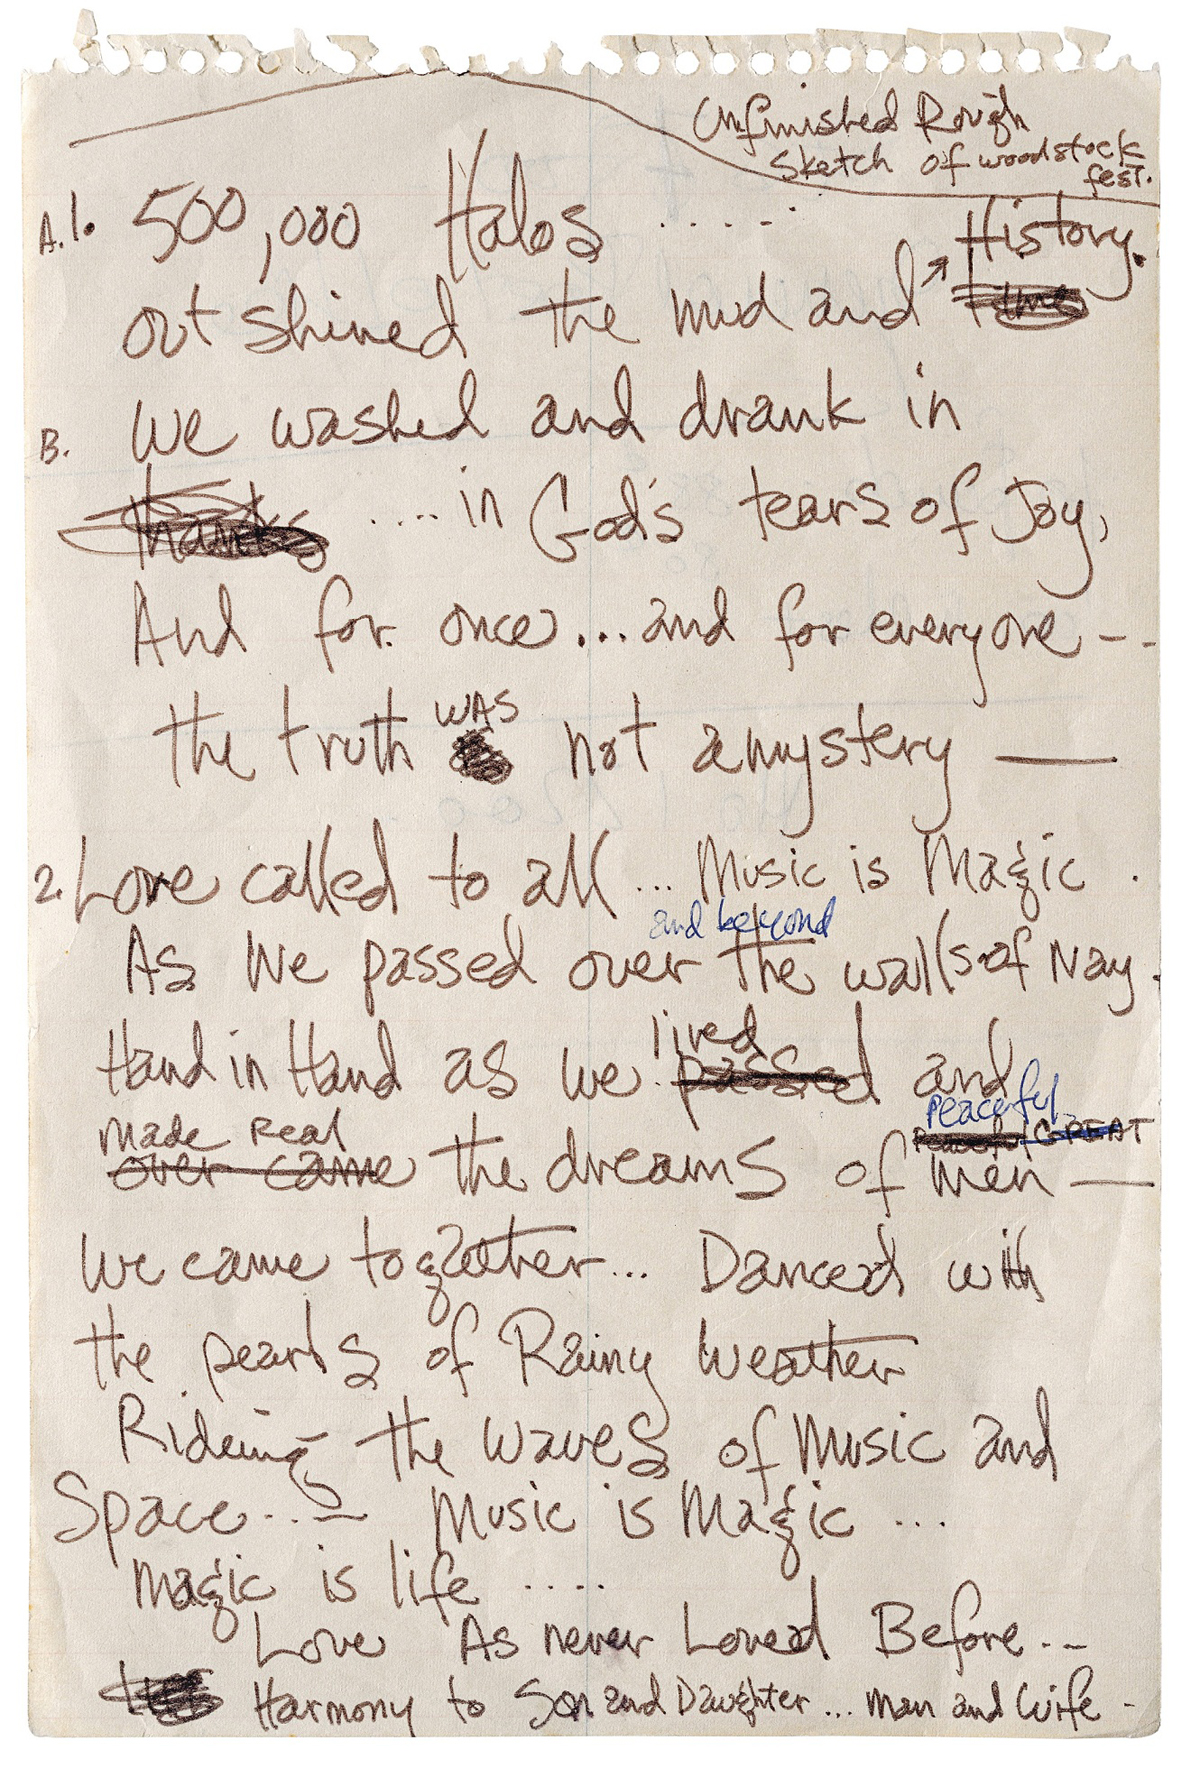 Unfinished Rough
Sketch of woodstock
fest.
A. 1. 500,000 Halos ......
History.
outshined the mud and time
B. We washed and drank in
thanks ....in God's tears of Joy,
And for once...and for everyone--
WAS
the truth not a mystery —
2. Love called to all ... Music is Magic .
and beyond
As We passed over the walls of Nay.
lived
Hand in Hand as we passed and
peaceful
made real Peaceful GREAT
over came the dreams of men —
We came together... Danced with
the pearls of Rainy Weather
Rideing the waves of Music and
Space..— Music is Magic ...
magic is life ....
Love As never Loved Before..-
Harmony to Son and Daughter... man and wife -